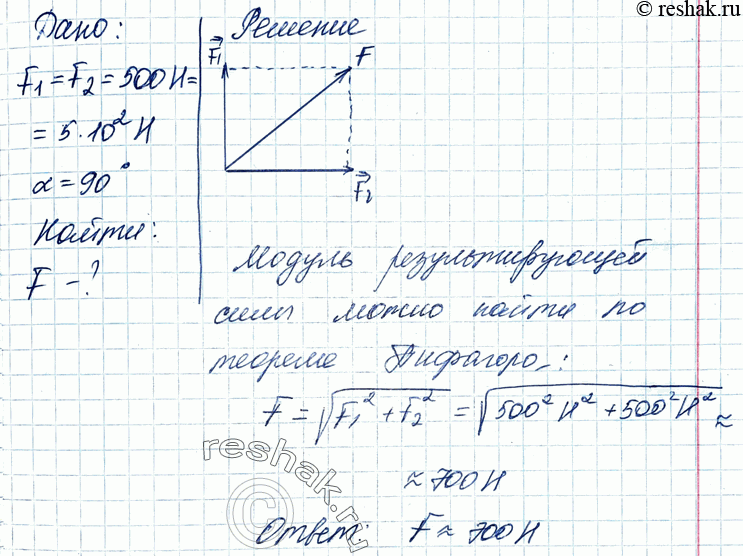 © reshak.ru
Дано:
F₁ = F₂ = 500 Н =
= 5·10² Н
α = 90°
Найти:
F – ?
Решение
F⃗₁
F
F⃗₂
Модуль результирующей
силы можно найти по
теореме Пифагора:
F = √(F₁² + F₂²) = √(500² Н² + 500² Н²) ≈
≈ 700 Н
Ответ: F ≈ 700 Н
reshak.ru
©